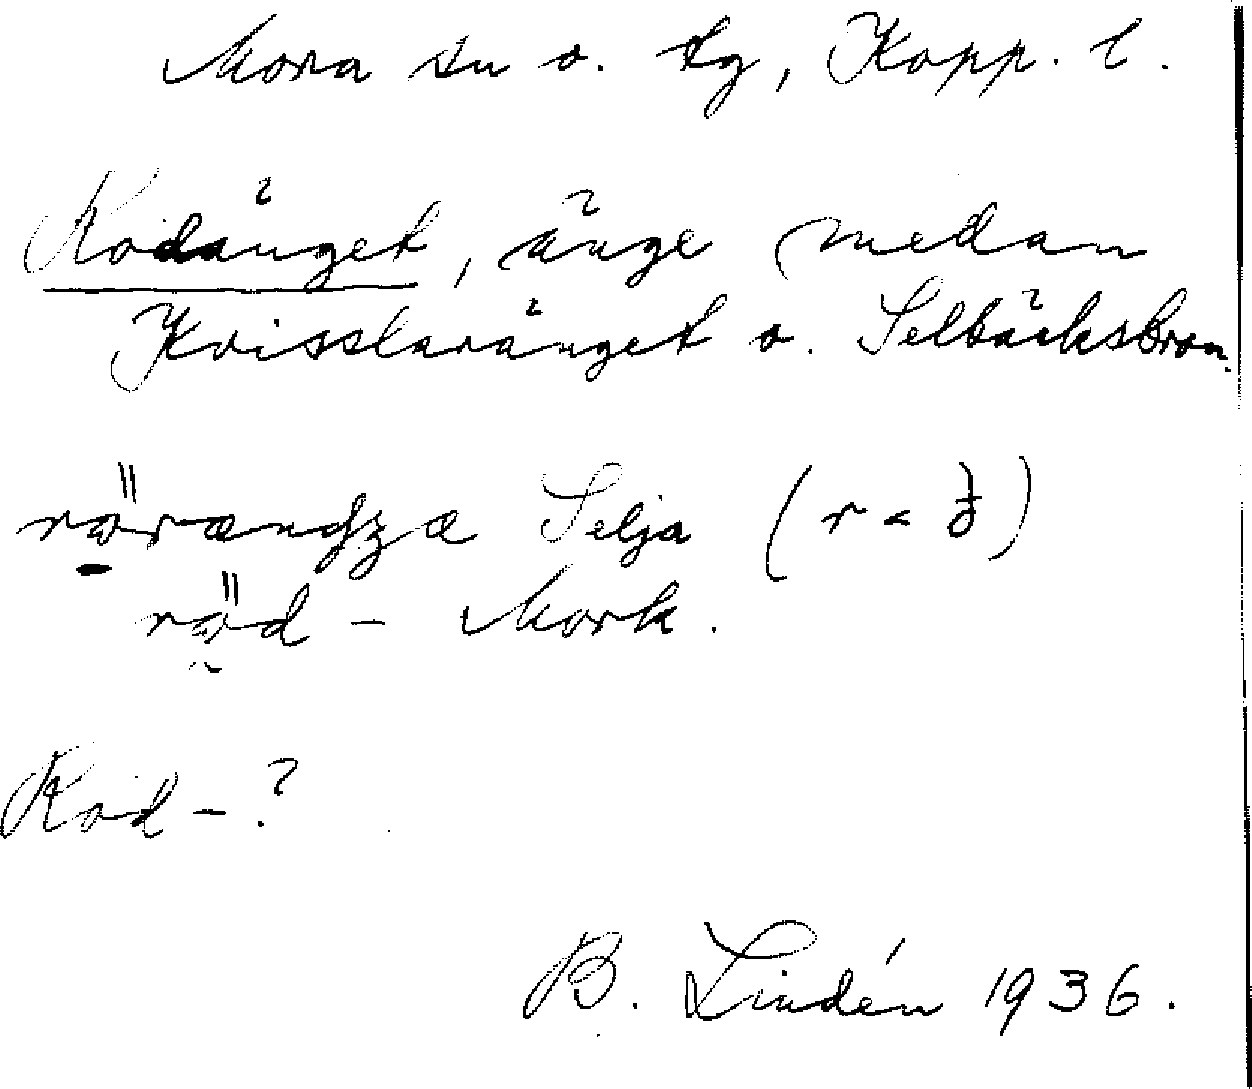 Mora sn o. tg, Kopp. l.
Rodänget, änge medan
Kvisslaränget o. Selbäcksbron.
Selja (r <
röd - Mork.
Rod - ?
B. Lindén 1936.